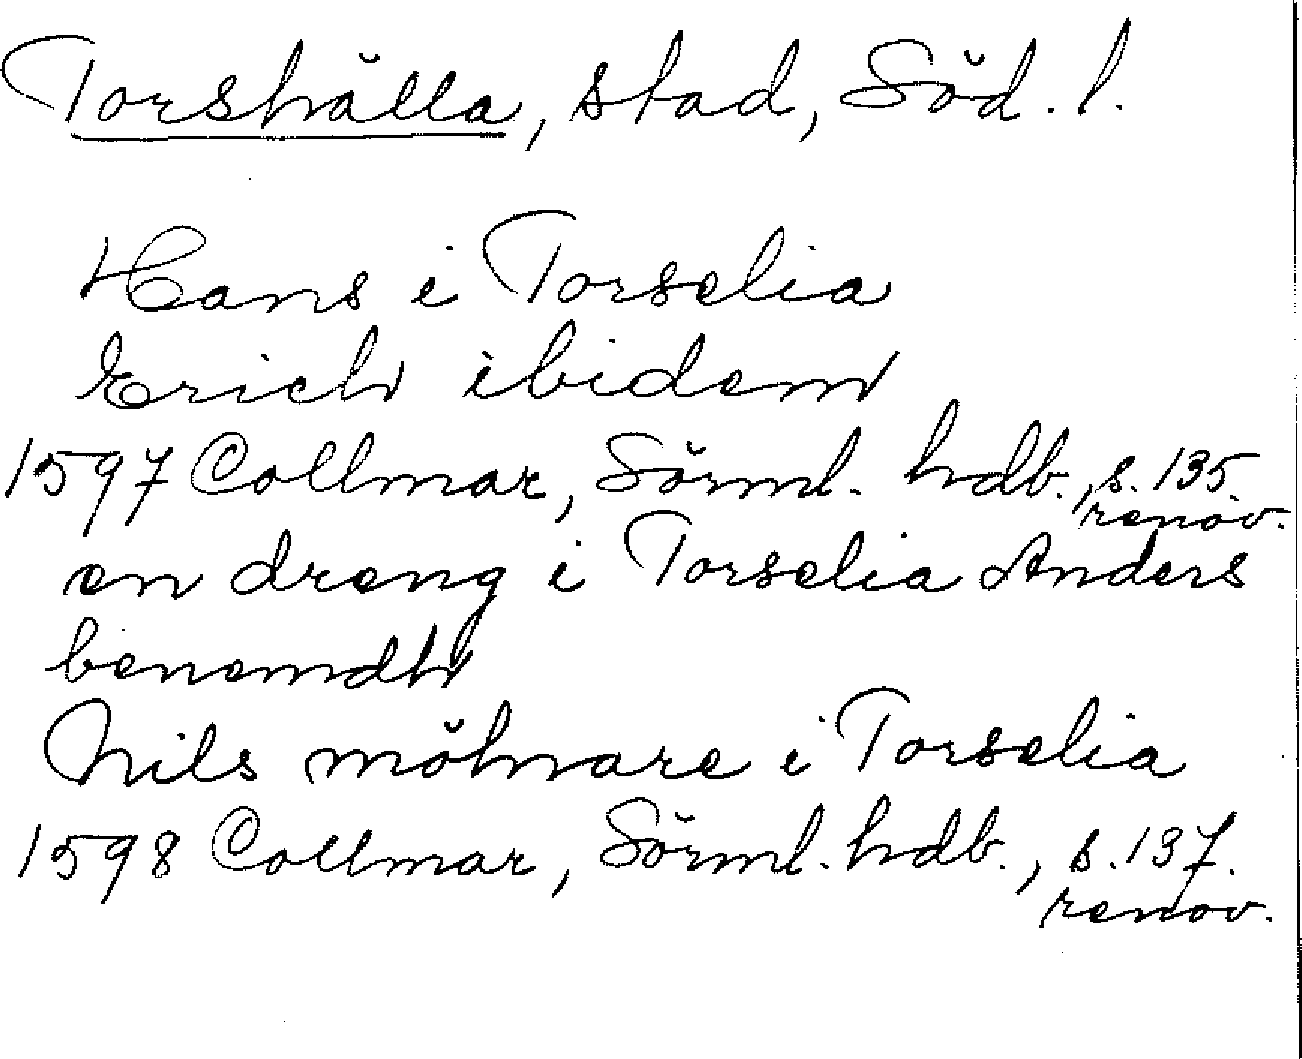 Torshälla, stad, Söd. l.
Hans i Torselia
Erich ibidem
1597 Collmar, Sörml. hdb., s. 135.
renov.
en dreng i Torselia Anders
benemdh
Nils möhnare i Torselia
1598 Collmar, Sörml. hdb., s. 137.
renov.